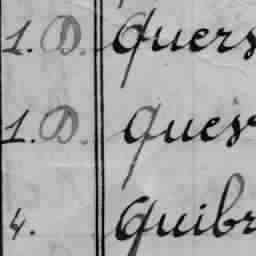 1. D. Quers
1. D. Ques
4. Quibr